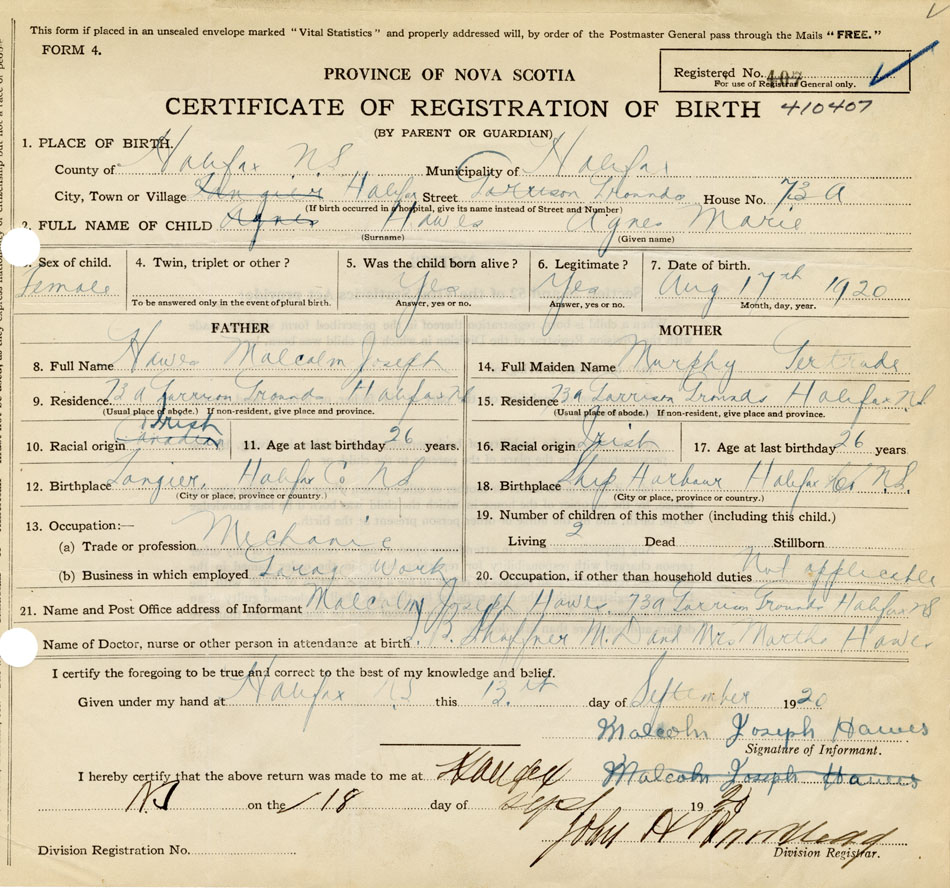 This form if placed in an unsealed envelope marked "Vital Statistics" and properly addressed will, by order of the Postmaster General pass through the Mails "FREE."
FORM 4.
Registered No. 407
For use of Registrar General only.
PROVINCE OF NOVA SCOTIA
CERTIFICATE OF REGISTRATION OF BIRTH 410407
(BY PARENT OR GUARDIAN)
1. PLACE OF BIRTH.
County of Halifax NS Municipality of Halifax
City, Town or Village Tangier Halifax Street Garrison Grounds House No. 73 A
(If birth occurred in hospital, give its name instead of Street and Number)
2. FULL NAME OF CHILD Agnes Hawes Agnes Marie
(Surname) (Given name)
3. Sex of child. 4. Twin, triplet or other? 5. Was the child born alive? 6. Legitimate? 7. Date of birth.
Female Yes Yes Aug 17th 1920
To be answered only in the event of plural birth. Answer, yes or no. Answer, yes or no. Month, day, year.
FATHER
8. Full Name Hawes Malcolm Joseph
9. Residence 73 a Garrison Grounds Halifax NS
(Usual place of abode.) If non-resident, give place and province.
Irish
10. Racial origin Canadian 11. Age at last birthday 26 years.
12. Birthplace Tangier, Halifax Co NS
(City or place, province or country.)
13. Occupation:—
(a) Trade or profession Michanic
(b) Business in which employed Garag Work
MOTHER
14. Full Maiden Name Murphy Gertrude
15. Residence 73a Garrison Grounds Halifax N.S.
(Usual place of abode.) If non-resident, give place and province.
16. Racial origin Irish 17. Age at last birthday 26 years
18. Birthplace Ship Harbour Halifax Co N.S.
(City or place, province or country.)
19. Number of children of this mother (including this child.)
Living 2 Dead Stillborn
20. Occupation, if other than household duties Not applicable
21. Name and Post Office address of Informant Malcolm Joseph Hawes 73a Garrison Grounds Halifax NS
Name of Doctor, nurse or other person in attendance at birth. B. Shaffner M.D and Mrs Martha Hawes
I certify the foregoing to be true and correct to the best of my knowledge and belief.
Given under my hand at Halifax NS this 13th day of September 1920
Malcolm Joseph Hawes
Signature of Informant.
I hereby certify that the above return was made to me at Halifax Malcolm Joseph Hawes
NS on the 18 day of Sept 1920
John A
Division Registration No. Division Registrar.